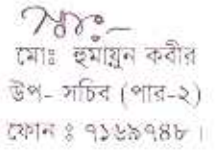 মোঃ হুমায়ুন কবীর
উপ- সচিব (পার-২)
ফোন ঃ ৭১৬৯৭৪৮।